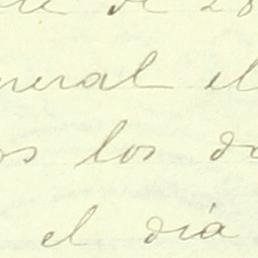 de 28
neral el
os los do
el día